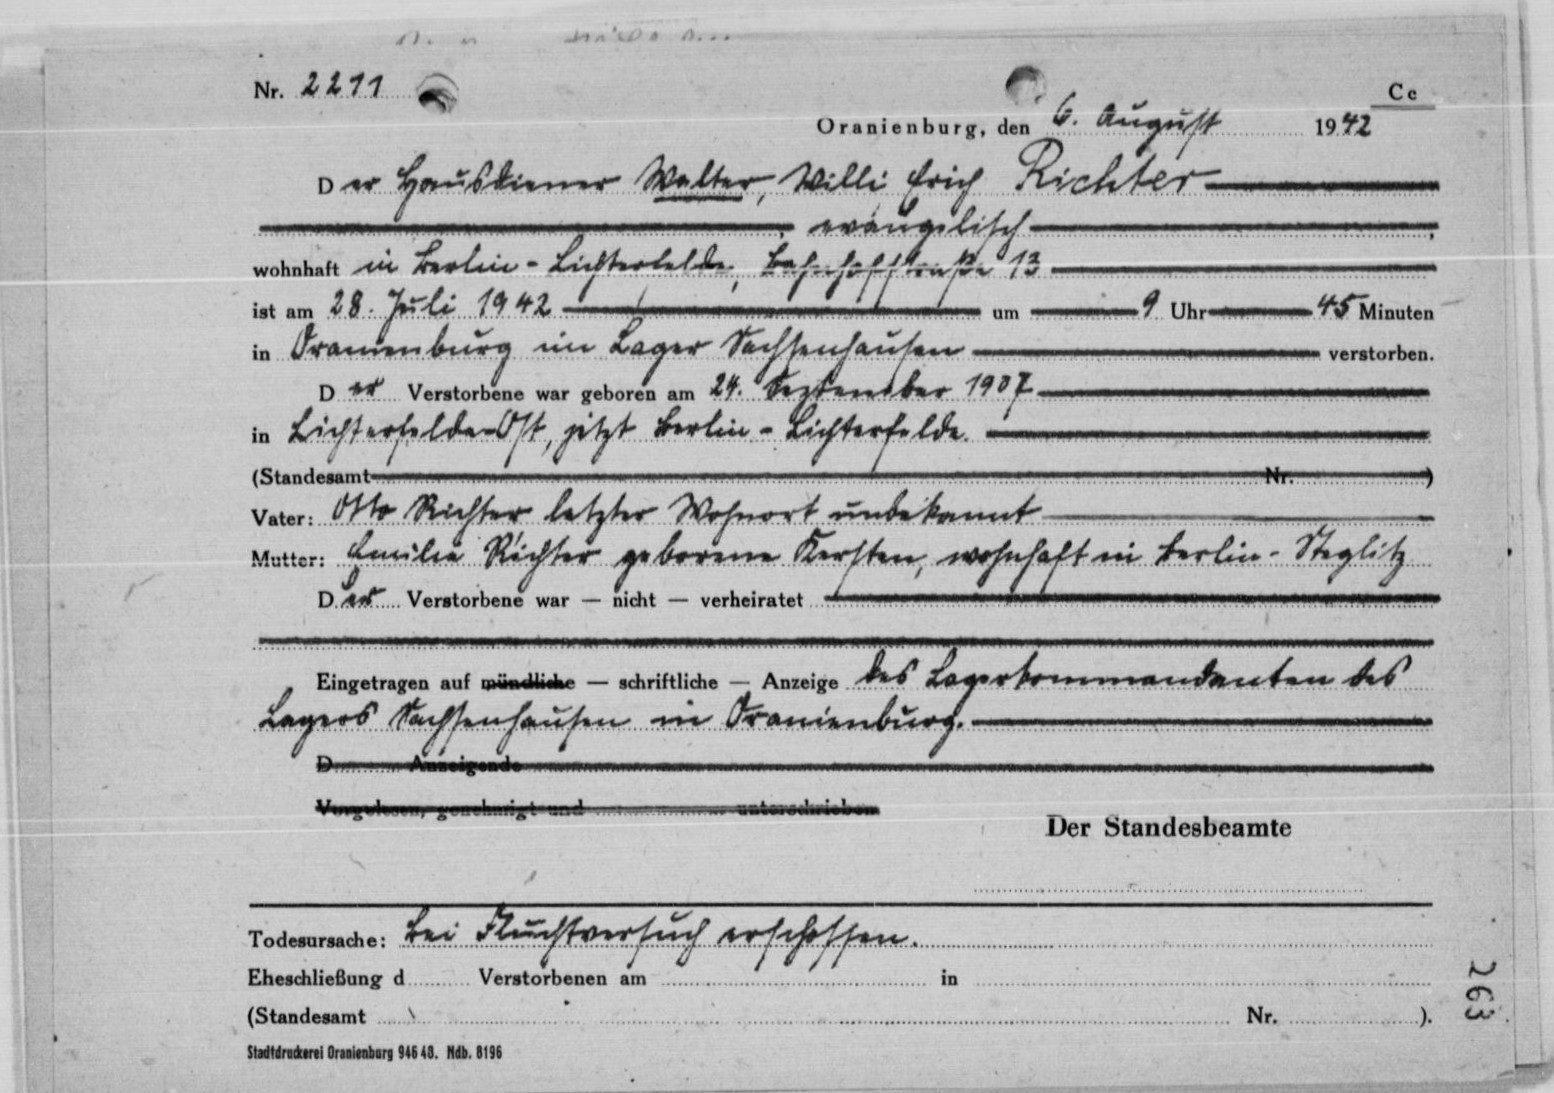 Nr. 2211
Cc
Oranienburg, den 6. August 1942
Der Hausdiener Walter, Willi Erich Richter
, evangelisch ,
wohnhaft in Berlin-Lichterfelde, Bahnhofstraße 13
ist am 28. Juli 1942 um 9 Uhr 45 Minuten
in Oranienburg im Lager Sachsenhausen verstorben.
Der Verstorbene war geboren am 24. September 1907
in Lichterfelde-Ost, jetzt Berlin-Lichterfelde.
(Standesamt Nr. )
Vater: Otto Richter letzter Wohnort unbekannt
Mutter: Emilie Richter geborene Kersten, wohnhaft in Berlin-Steglitz
Der Verstorbene war — nicht — verheiratet
Eingetragen auf mündliche — schriftliche — Anzeige des Lagerkommandanten des
Lagers Sachsenhausen in Oranienburg.
D Anzeigende
Vorgelesen, genehmigt und unterschrieben
Der Standesbeamte
Todesursache: Bei Fluchtversuch erschossen.
Eheschließung d Verstorbenen am in
(Standesamt Nr. ).
263
Stadtdruckerei Oranienburg 946 40. Ndb. 8196